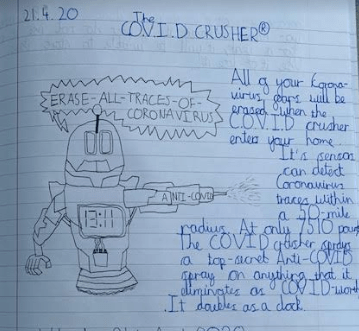 21.4.20
The
COV.I.D CRUSHER®
All of your Corona-
virus fears will be
erased when the
C.O.V.I.D crusher
enters your home.
ERASE-ALL-TRACES-OF-
CORONAVIRUS
It's sensor
can detect
Coronavirus
traces within
a 20 mile
radius. At only 7510
The COVID crusher sprays
a top-secret Anti-COVID
spray on anything that it
eliminates as COVID-
.It doubles as a clock.
ANTI-COVID
13:11